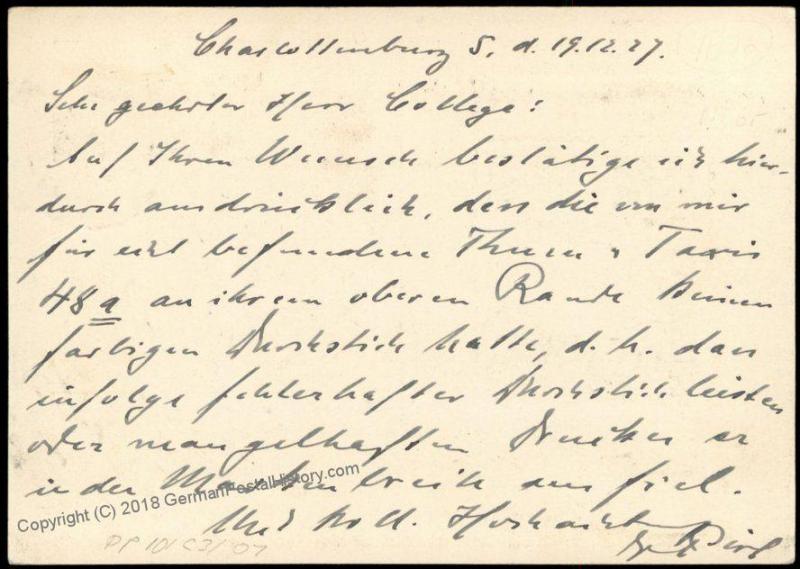 Charlottenburg 5, d. 19.12.27.
Sehr geehrter Herr College!
Auf Ihren Wunsch bestätige ich hier-
durch ausdrücklich, dass die von mir
für echt befundene Thurn u Taxis
48 a an ihrem oberen Rande keinen
farbigen Durchstich hatte, d. h. dass
infolge fehlerhafter Durchstichleisten
oder mangelhaften Druckes er
in der Markenbreite ausfiel.
Mit koll. Hochacht
Copyright (C) 2018 GermanPostalHistory.com